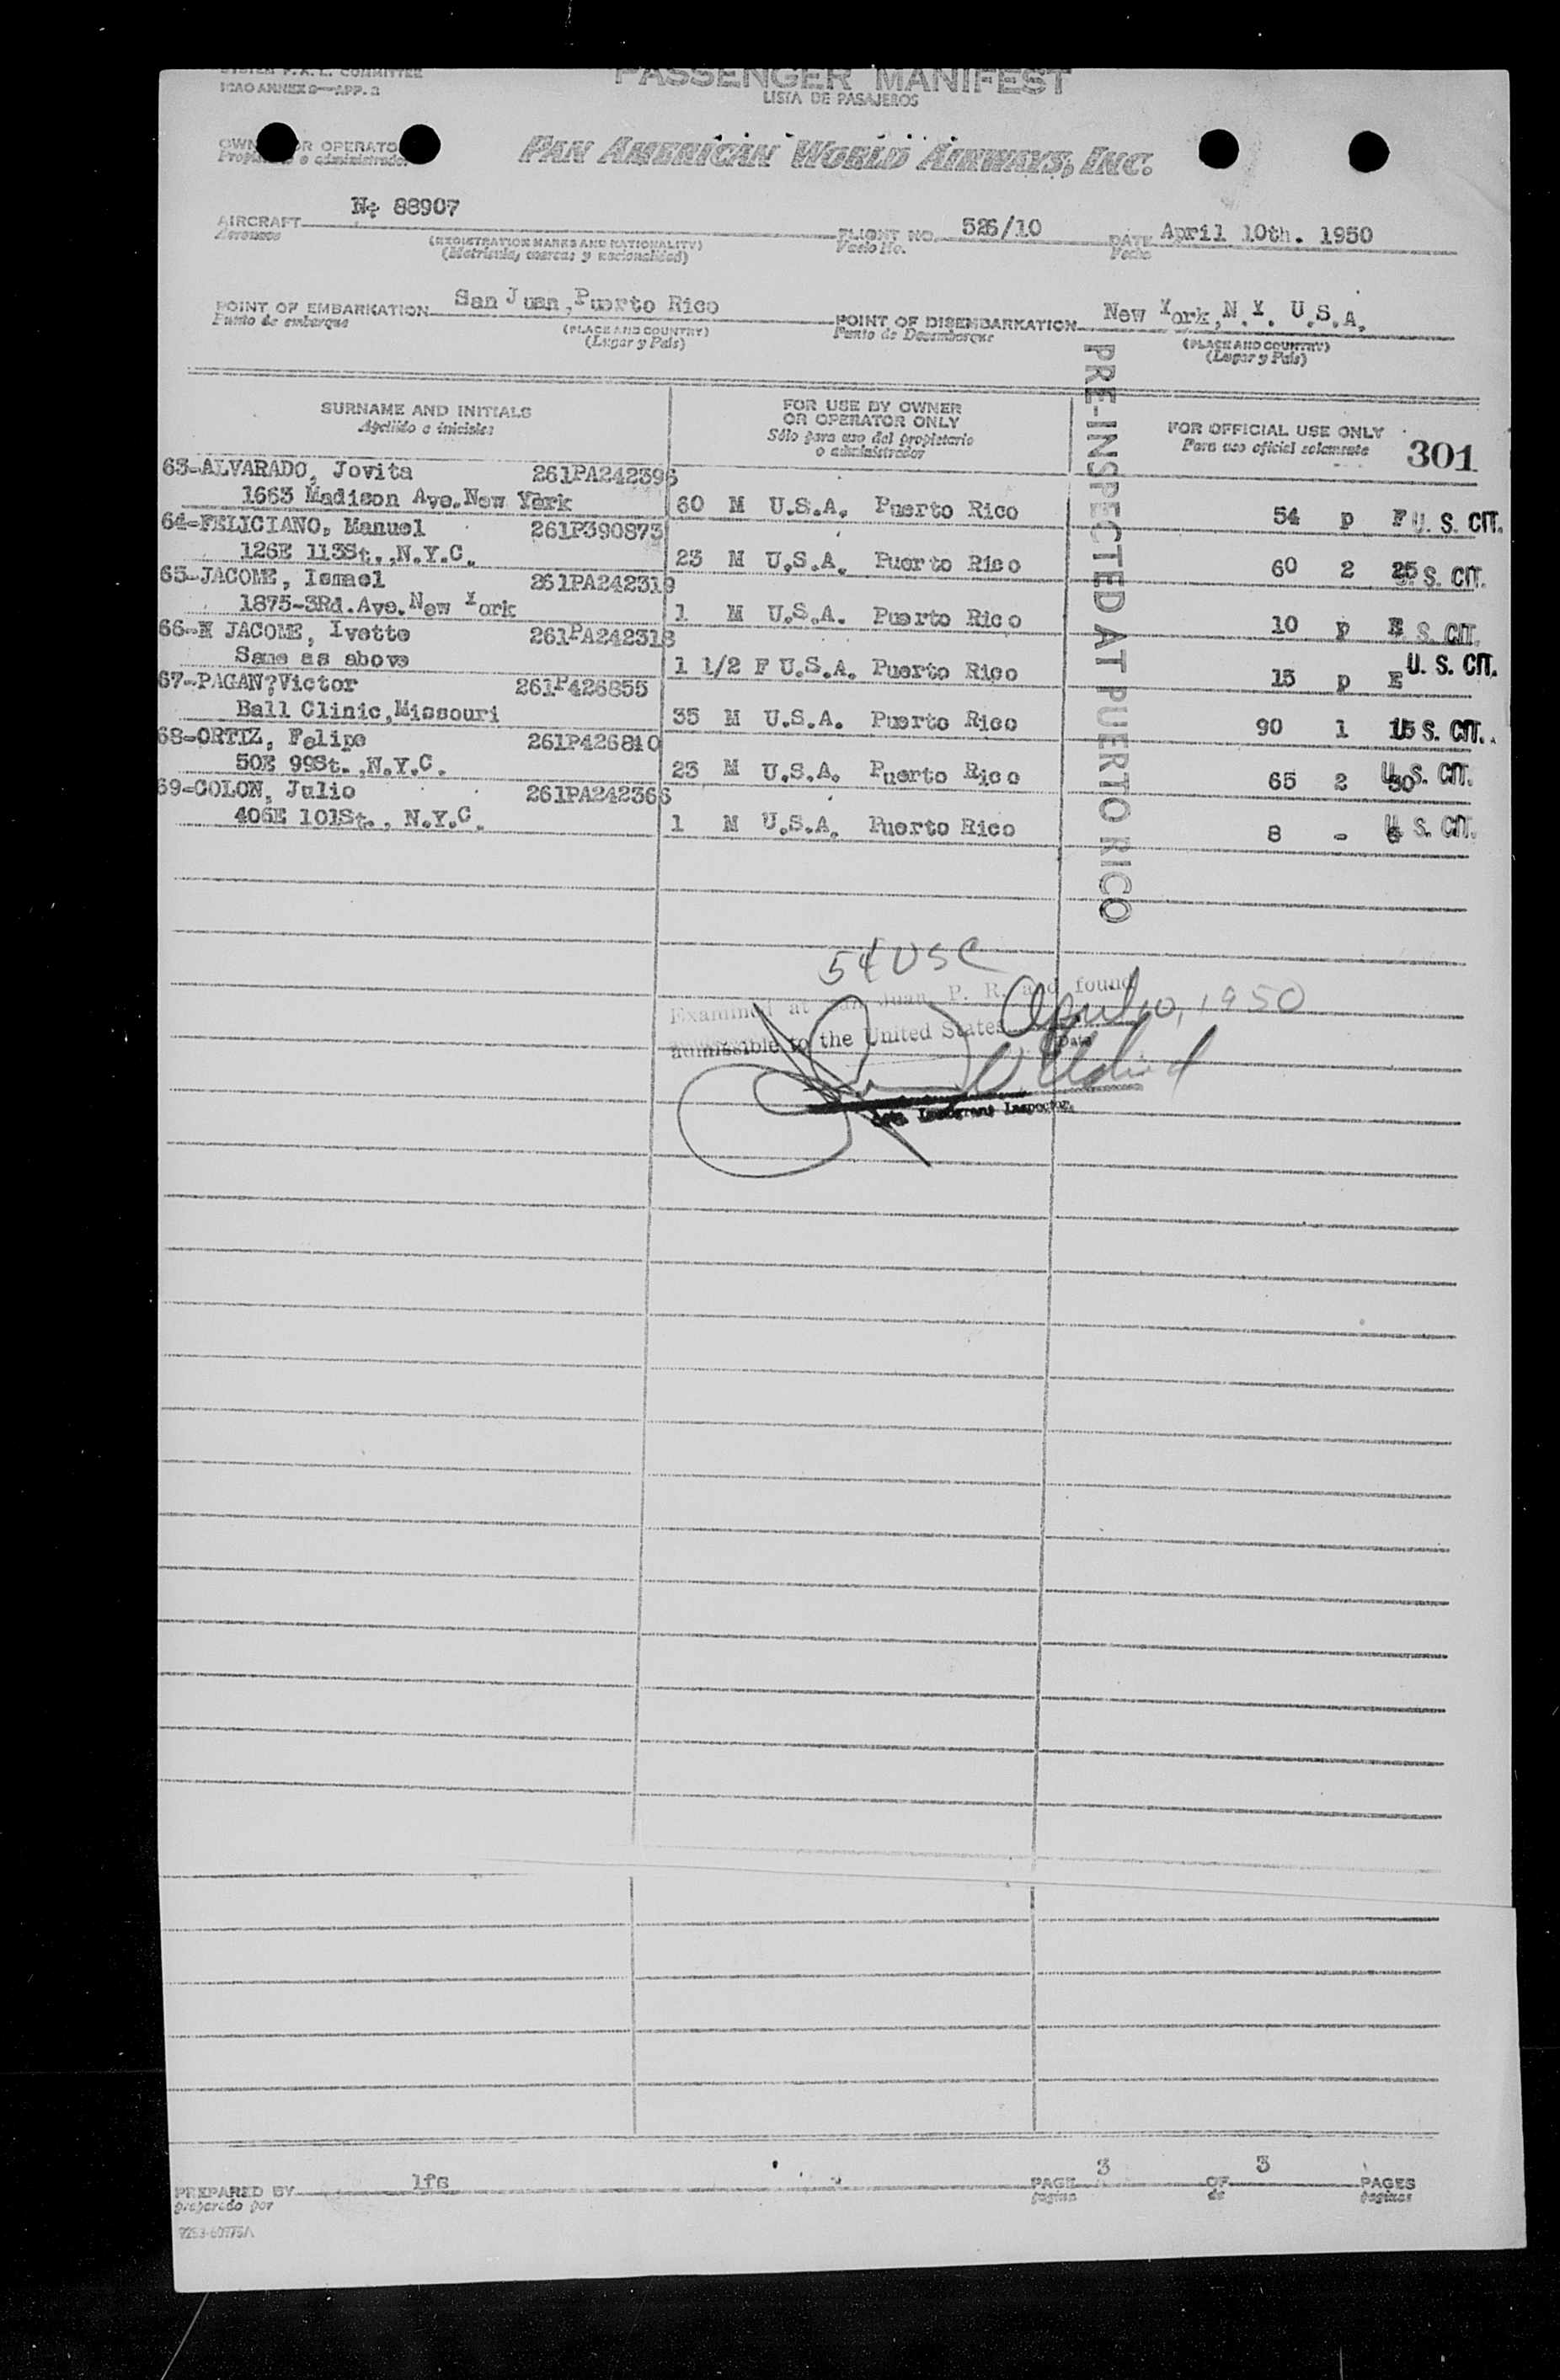 SYSTEM F.A.L. COMMITTEE
ICAO ANNEX 9—APP. 2
PASSENGER MANIFEST
LISTA DE PASAJEROS
OWNER OR OPERATOR
Propietario o administrador
PAN AMERICAN WORLD AIRWAYS, INC.
AIRCRAFT N: 88907
Aeronave
(REGISTRATION MARKS AND NATIONALITY)
(Matrícula, marcas y nacionalidad)
FLIGHT NO. 526/10
Vuelo No.
DATE April 10th. 1950
Fecha
POINT OF EMBARKATION San Juan, Puerto Rico
Punto de embarque
(PLACE AND COUNTRY)
(Lugar y País)
POINT OF DISEMBARKATION New York, N.Y. U.S.A.
Punto de Desembarque
(PLACE AND COUNTRY)
(Lugar y País)
SURNAME AND INITIALS
Apellido e iniciales
FOR USE BY OWNER
OR OPERATOR ONLY
Sólo para uso del propietario
o administrador
FOR OFFICIAL USE ONLY
Para uso oficial solamente
301
PRE-INSPECTED AT PUERTO RICO
63-ALVARADO, Jovita 261PA242396
1663 Madison Ave. New York 60 M U.S.A. Puerto Rico 54 p F U. S. CIT.
64-FELICIANO, Manuel 261P390873
126E 113St., N.Y.C. 23 M U.S.A. Puerto Rico 60 2 25 S. CIT.
65-JACOME, Ismael 261PA242319
1875-3Rd. Ave. New York 1 M U.S.A. Puerto Rico 10 p E S. CIT.
66-M JACOME, Ivette 261PA242318
Same as above 1 1/2 F U.S.A. Puerto Rico 15 p E U. S. CIT.
67-PAGAN?Victor 261P426855
Ball Clinic, Missouri 35 M U.S.A. Puerto Rico 90 1 15 S. CIT.
68-ORTIZ, Felipe 261P426810
50E 99St., N.Y.C. 23 M U.S.A. Puerto Rico 65 2 30 U. S. CIT.
69-COLON, Julio 261PA242366
406E 101St., N.Y.C. 1 M U.S.A. Puerto Rico 8 - 6 U. S. CIT.
54 USC
Examined at San Juan, P. R. and found
admissible to the United States April 10, 1950
Date
Immigrant Inspector.
PREPARED BY lfs
preparado por
PAGE 3 OF 3 PAGES
página de páginas